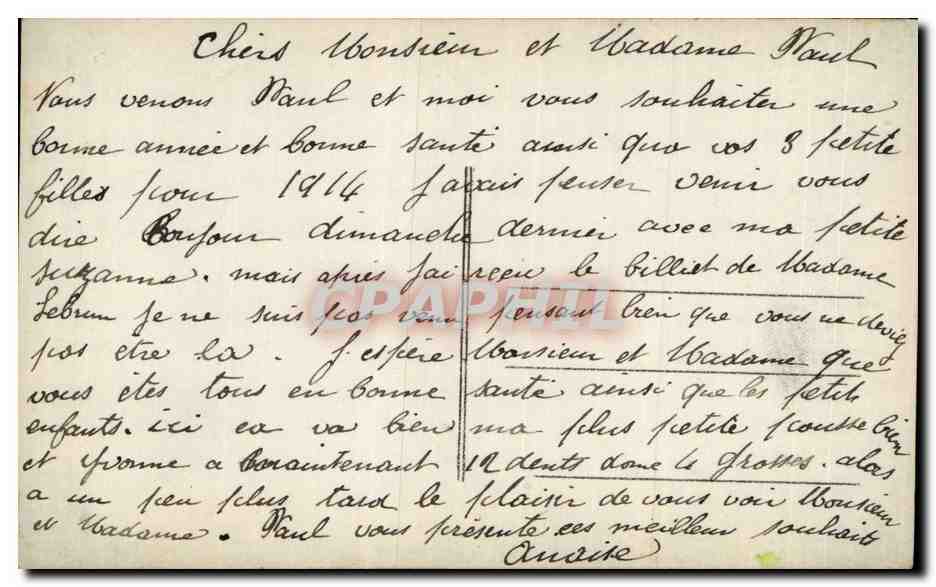 Chers Monsieur et Madame Paul
Nous venons Paul et moi vous souhaiter une
bonne année et bonne santé ainsi que vos 3 petite
filles pour 1914 J avais penser venir vous
dire Bonjour dimanche dernier avec ma petite
suzanne. mais après j'ai reçu le billiet de Madame
Lebrun je ne suis pas venu pensant bien que vous ne deviez
pas etre la. J espère Monsieur et Madame que
vous êtes tous en bonne santé ainsi que les petits
enfants. ici ca va bien ma plus petite pousse bien
et Yvonne a maintenant 12 dents dome 4 grosses. alors
a un peu plus tard le plaisir de vous voir Monsieur
et Madame. Paul vous présente ces meilleur souhaits
Anaise
CPAPHIL